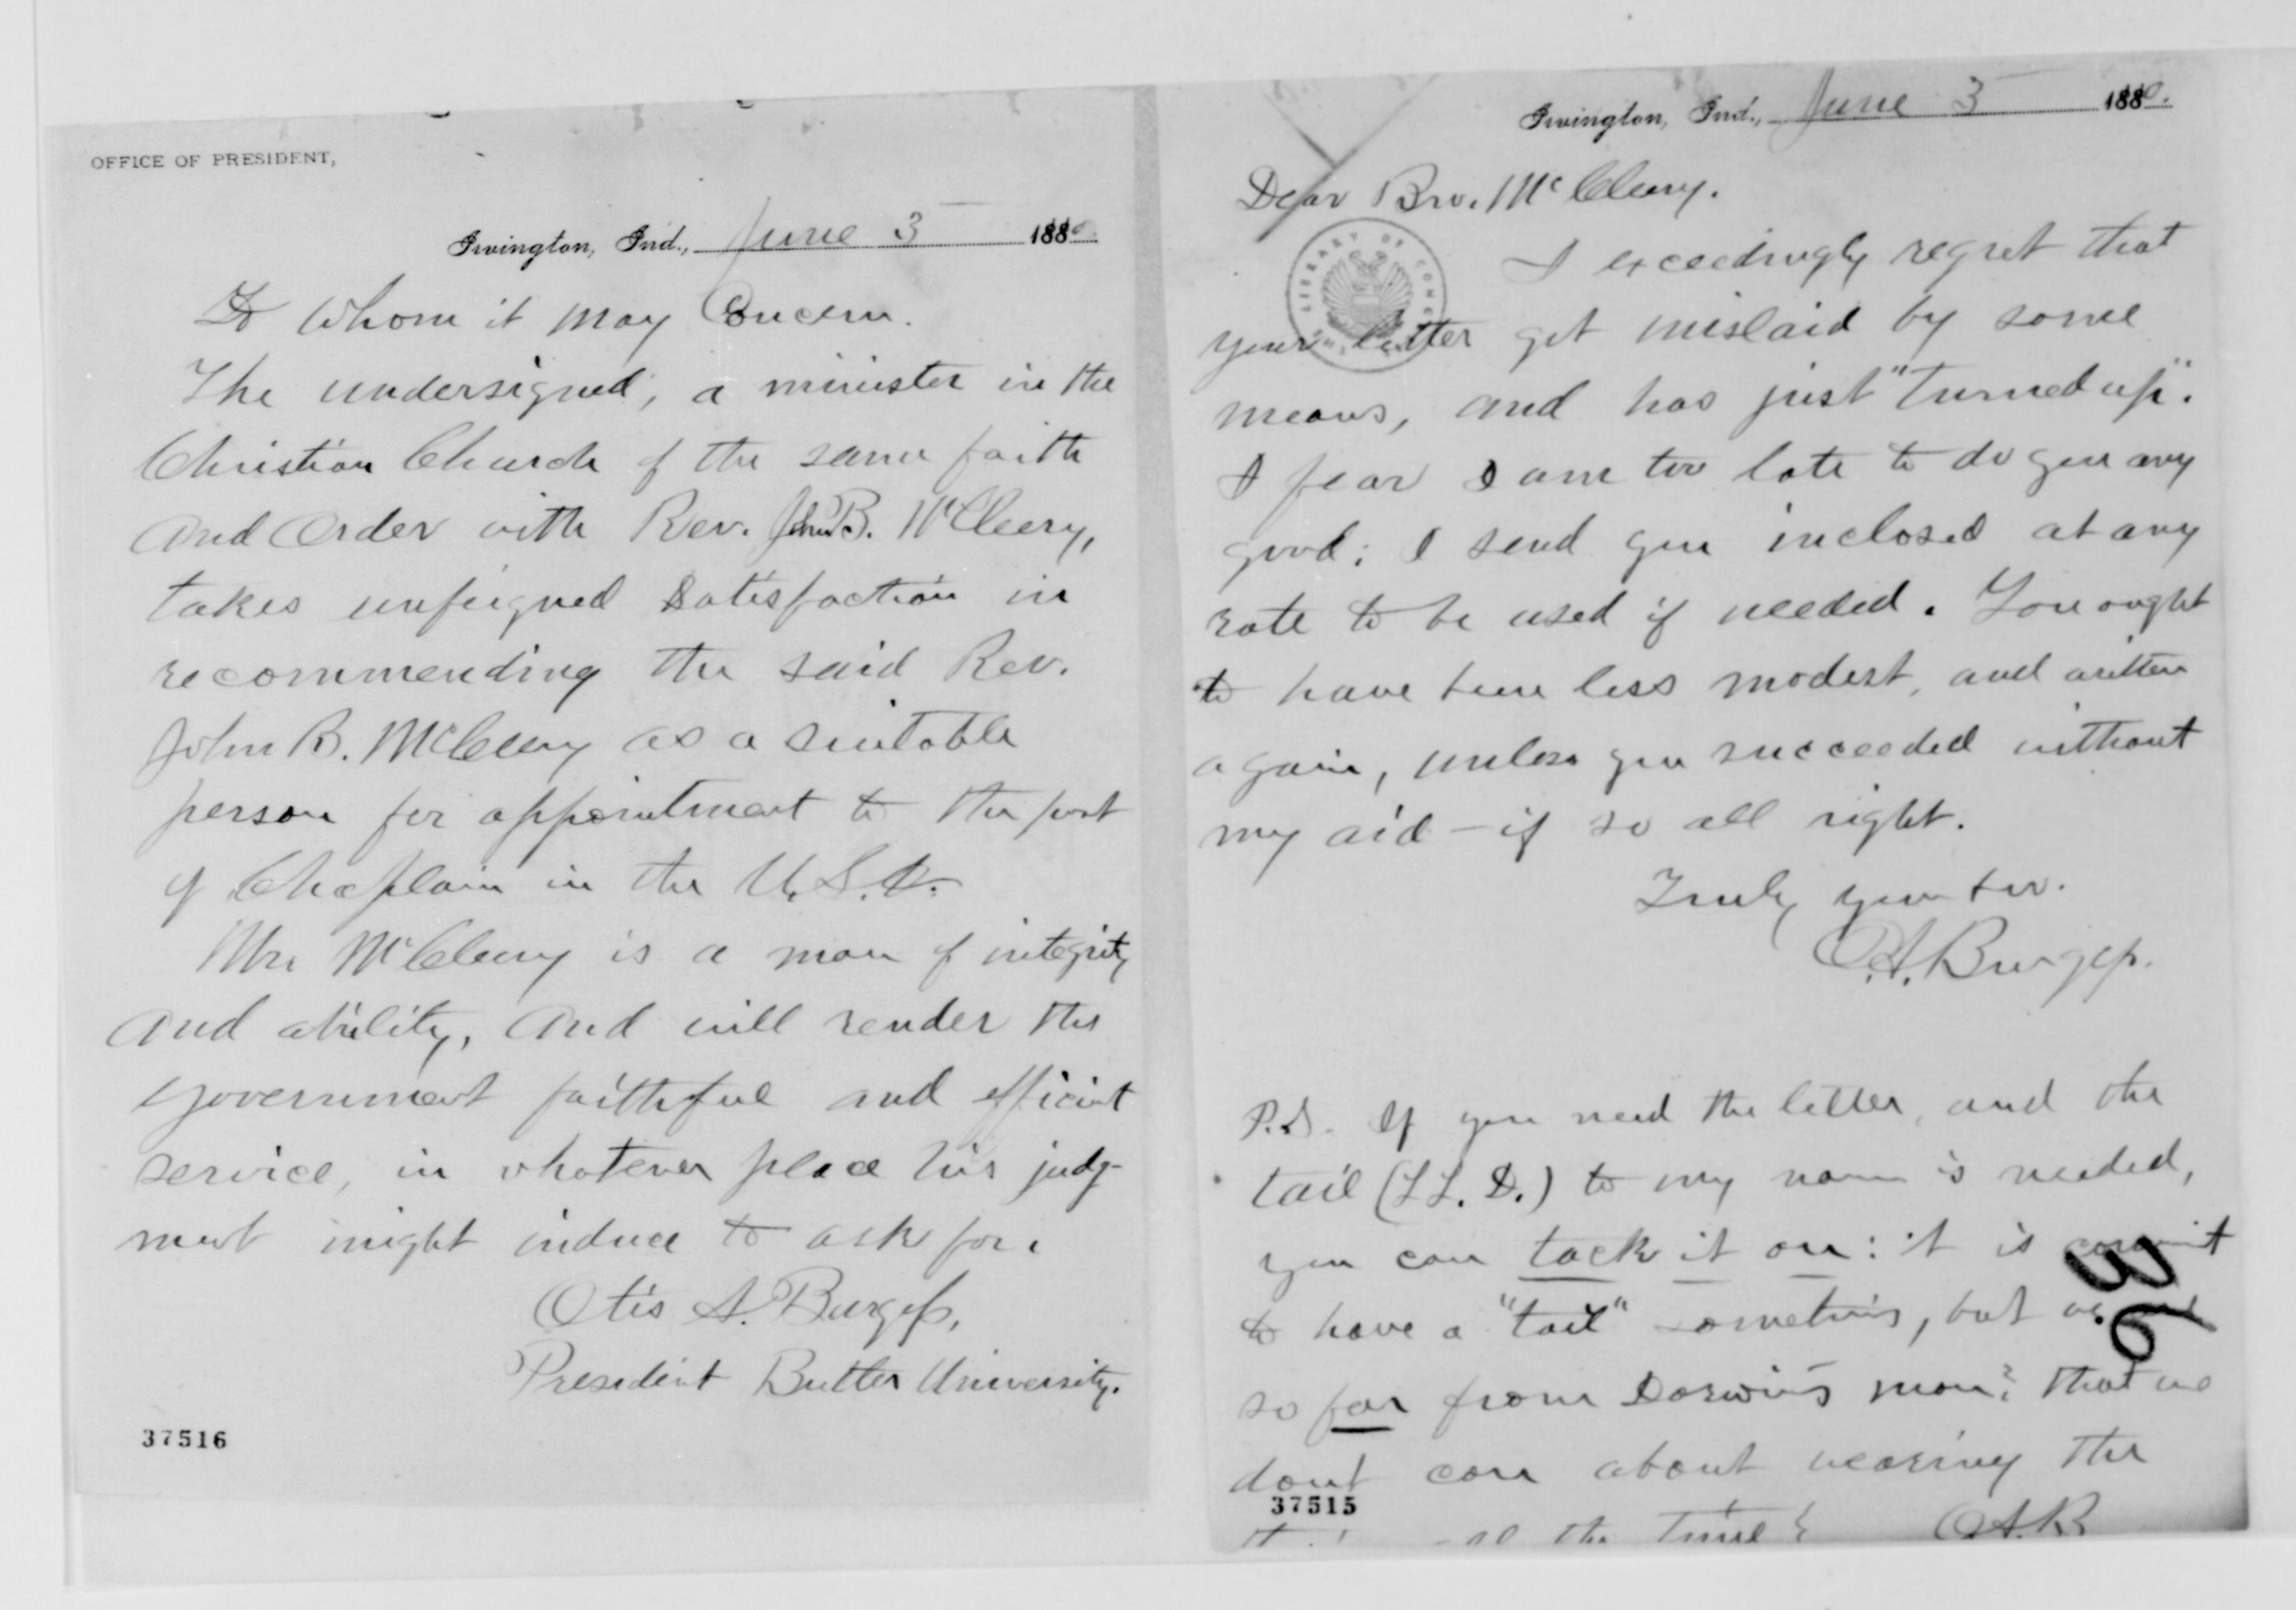 OFFICE OF PRESIDENT,
Irvington, Ind., June 3 1880.
To Whom it may Concern.
The undersigned, a minister in the
Christian Church of the same faith
and order with Rev. John B. McCleery,
takes unfeigned satisfaction in
recommending the said Rev.
John B. McCleery as a suitable
person for appointment to the post
of Chaplain in the U.S.A.
Mr. McCleery is a man of integrity
and ability, and will render the
government faithful and efficient
service, in whatever place his judg-
ment might induce to ask for.
Otis A. Burgess,
President Butler University.
37516
Irvington, Ind., June 3 1880.
Dear Bro. McCleery.
LIBRARY OF CONGRESS
I exceedingly regret that
your letter got mislaid by some
means, and has just "turned up".
I fear I am too late to do you any
good; I send you inclosed at any
rate to be used if needed. You ought
to have been less modest, and written
again, unless you succeeded without
my aid - if so all right.
Truly your bro.
O.A. Burgess.
P.S. If you need the letter, and the
tail (LL. D.) to my name is needed,
you can tack it on: it is
to have a "tail" sometimes, but
so far from Darwin's man? that we
dont care about wearing the
37515
all the time! O.A.B
93